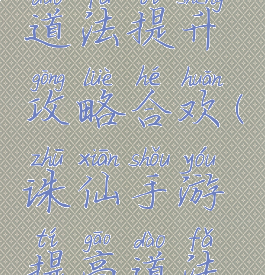 dào fǎ tí shēng
道法提升
gōng lüè hé huān
攻略合欢(
zhū xiān shǒu yóu
诛仙手游
tí gāo dào fǎ
提高道法